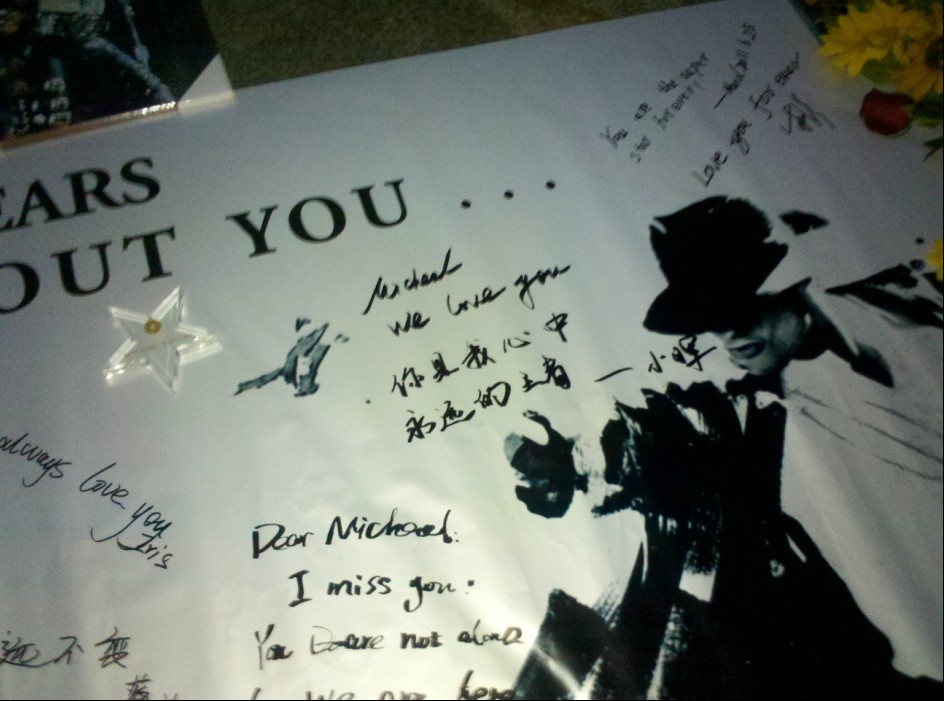 EARS
OUT YOU ...
You are the super
star forever!
Love you for ever
Michael
we love you
你是我心中
永远的主角 — 小晖
always love you
Iris
Dear Michael.
I miss you.
You are not alone
远不变
We are here